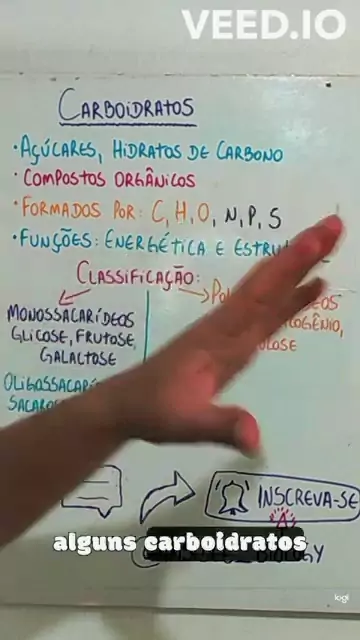 VEED.IO
CARBOIDRATOS
• AÇÚCARES, HIDRATOS DE CARBONO
• COMPOSTOS ORGÂNICOS
• FORMADOS POR: C, H, O, N, P, S
• FUNÇÕES: ENERGÉTICA E
CLASSIFICAÇÃO:
MONOSSACARÍDEOS
GLICOSE, FRUTOSE,
GALACTOSE
INSCREVA-SE
alguns carboidratos
logi